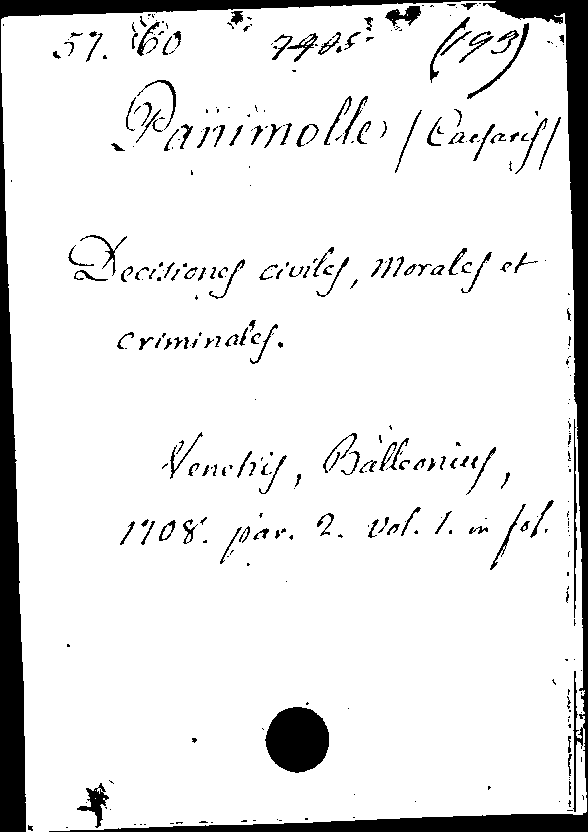 57. 60 7405 (193)
Panimolle / Caesaris /
Decisiones civiles, morales et
criminales.
Venetiis, Balleonius,
1708. par. 2. vol. 1. in fol.